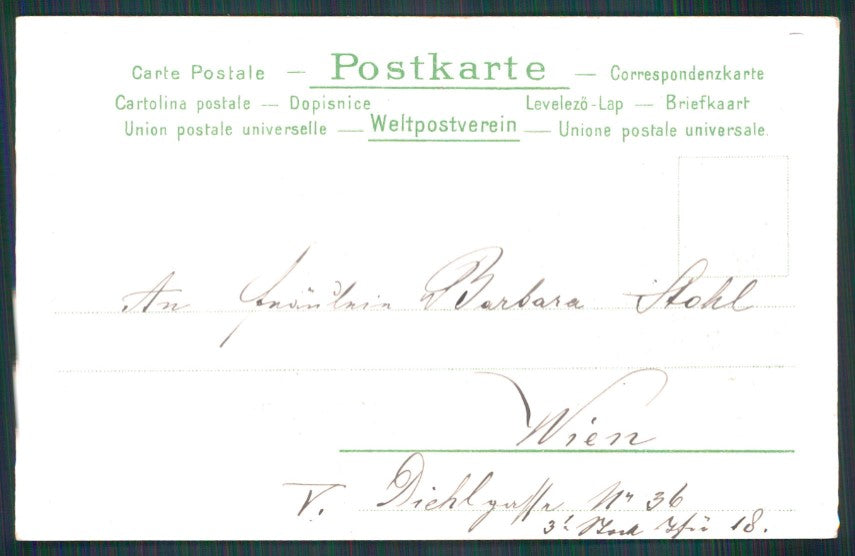 Carte Postale — Postkarte — Correspondenzkarte
Cartolina postale — Dopisnice Levelező-Lap — Briefkaart
Union postale universelle — Weltpostverein — Unione postale universale.
An Fräulein Barbara Stohl
Wien
V. Diehlgasse Nr 36
3t Stock Thür 18.